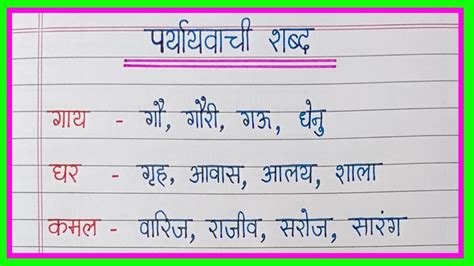 पर्यायवाची शब्द
गाय - गौ, गौरी, गऊ, धेनु
घर - गृह, आवास, आलय, शाला
कमल - वारिज, राजीव, सरोज, सारंग